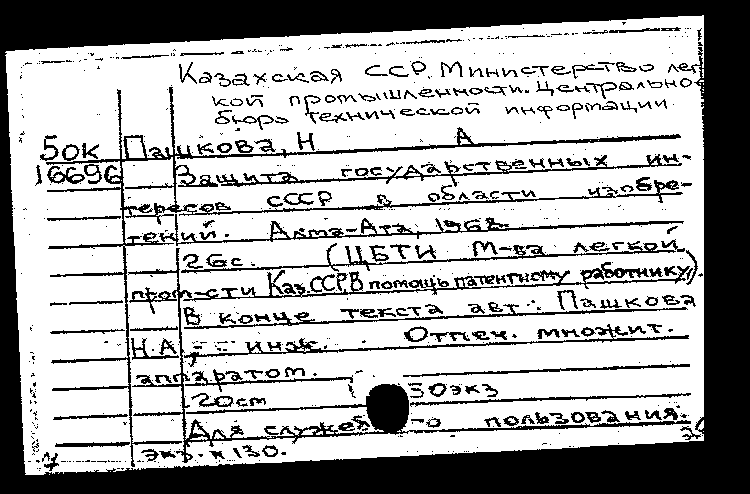 Казахская ССР. Министерство лег
кой промышленности. Центрально
бюро технической информации
Бок Пашкова, Н А
16696 Защита государственных ин-
тересов СССР в области изобре-
тений. Алма-Ата, 1968.
26с. (ЦБТИ М-ва легкой
пром-сти Каз.ССР В помощь патентному работнику).
В конце текста авт.: Пашкова
Н.А., - инж. Отпеч. множит.
аппаратом.
20см 50экз
Для служеб го пользования.
экз. к 130.